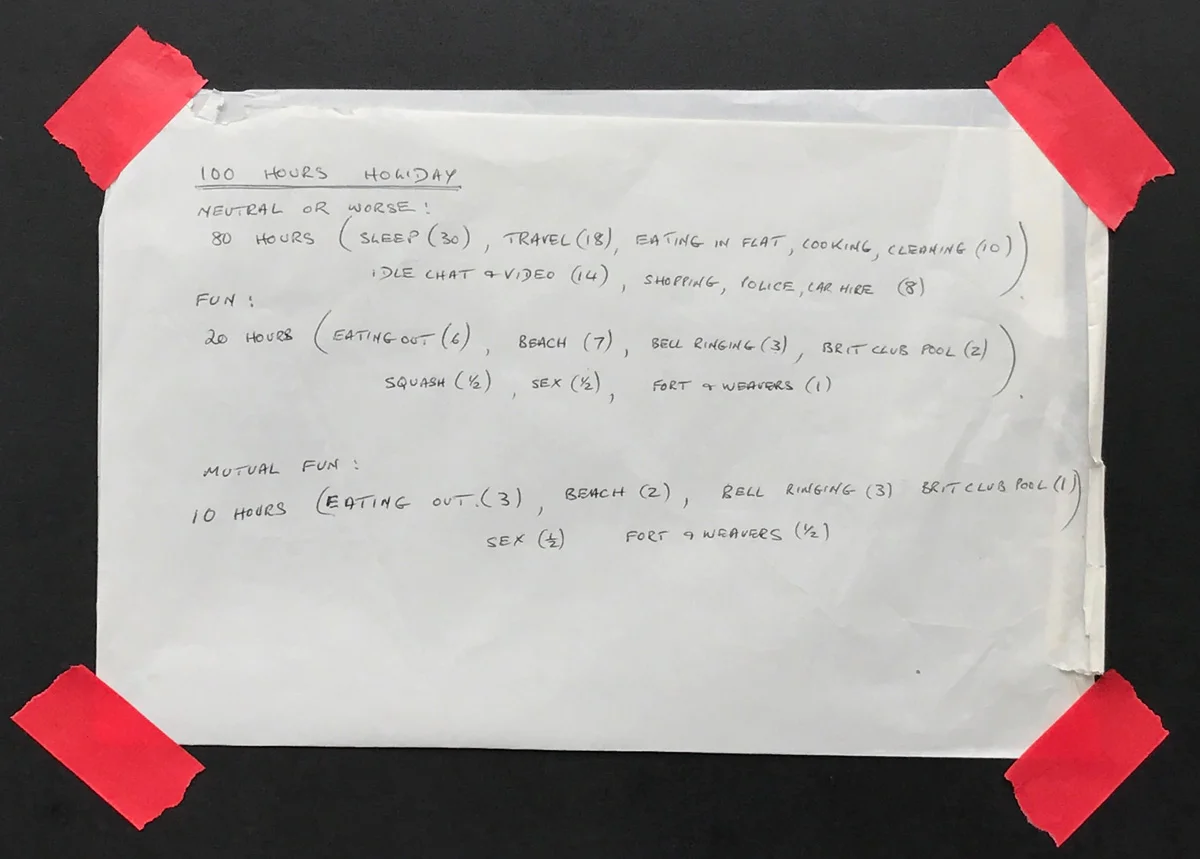 100 HOURS HOLIDAY
NEUTRAL OR WORSE :
80 HOURS ( SLEEP (30) , TRAVEL (18), EATING IN FLAT, COOKING, CLEANING (10)
IDLE CHAT & VIDEO (14) , SHOPPING, POLICE, CAR HIRE (8) ) .
FUN :
20 HOURS ( EATING OUT (6) , BEACH (7) , BELL RINGING (3) , BRIT CLUB POOL (2)
SQUASH (½) , SEX (½) , FORT & WEAVERS (1) ) .
MUTUAL FUN :
10 HOURS ( EATING OUT. (3) , BEACH (2) , BELL RINGING (3) BRIT CLUB POOL (1)
SEX (½) FORT & WEAVERS (½) )